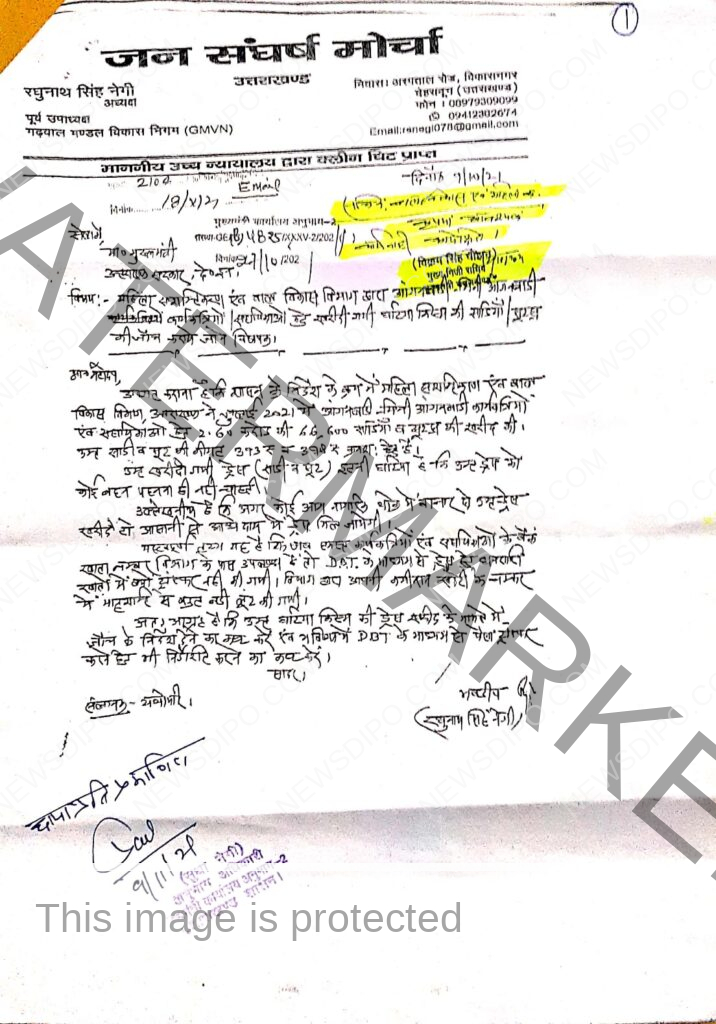 1
जन संघर्ष मोर्चा
उत्तराखण्ड
रघुनाथ सिंह नेगी
अध्यक्ष
पूर्व उपाध्यक्ष
गढ़वाल मण्डल विकास निगम (GMVN)
निवास: अस्पताल रोड, विकासनगर
देहरादून (उत्तराखण्ड)
फोन : 09412302674
Email:
माननीय उच्च न्यायालय द्वारा क्लीन चिट प्राप्त
2102
Email
दिनांक 18/X/21
दिनांक
मुख्यमंत्री कार्यालय अनुभाग-2
/XXXV-2/202
दिनांक /10/202
सेवा में,
मा० मुख्यमंत्री
उत्तराखण्ड सरकार, देहरादून
(विक्रम सिंह चौहान)
मुख्य निजी सचिव
विषय:- महिला सशक्तिकरण एंव बाल विकास विभाग द्वारा आंगनबाडी मिनी आंगनबाडी
कार्यकत्रियों सहायिकाओं हेतु खरीदी गयी घटिया किस्म की साडियों / सूट
की जाँच कराये जाने विषयक।
मान्य महोदय,
अवगत कराना है कि शासन के निर्देश के क्रम में महिला सशक्तिकरण एंव बाल
विकास विभाग, उत्तराखण्ड ने जुलाई 2021 में आंगनबाडी मिनी आंगनबाडी कार्यकत्रियों
एंव सहायिकाओं हेतु 2.60 करोड की 66,600 साडियाँ व सूट की खरीद की।
उक्त साडी व सूट की कीमत 393 ₹ व 398 ₹
उक्त खरीदी गयी ड्रेस (साडी व सूट) इतनी घटिया है कि उक्त ड्रेस को
कोई पहनना ही नही चाहती।
उल्लेखनीय है कि अगर कोई आम नागरिक बाजार से उक्त ड्रेस
खरीदे तो आसानी से आधे दाम में ड्रेस मिल जायेगी।
महत्वपूर्ण तथ्य यह है कि कार्यकत्रियों एंव सहायिकाओं के बैंक
खाता नम्बर विभाग के पास उपलब्ध हैं तो D.B.T. के माध्यम से ड्रेस हेतु धनराशी
खातों में क्यों ट्रांसफर नही की गयी। विभाग द्वारा अपनी कमीशन खोरी के चक्कर
में बहुत बडी लूट की गयी।
अत: आग्रह है कि उक्त घटिया किस्म की ड्रेस खरीद के मामले में
जाँच के निर्देश देने का कष्ट करें एंव भविष्य में D.B.T के माध्यम से पैसा ट्रांसफर
करने हेतु भी निर्देशित करने का कष्ट करें।
सादर।
संलग्नक - यथोपरि।
भवदीय
(रघुनाथ सिंह नेगी)
छायाप्रति प्रमाणित
9/11/21
अनुभाग अधिकारी
कार्यालय अनुभाग-2
उत्तराखण्ड शासन।
WATERMARKED
NEWSDIPO.COM
This image is protected